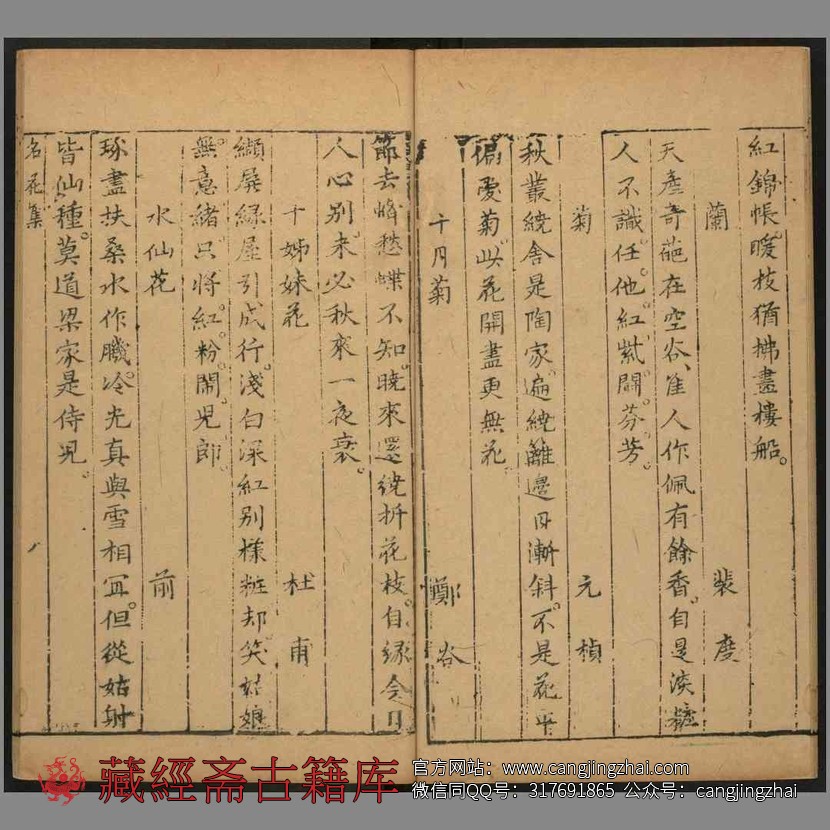 紅錦帳。暖枝猶拂畫樓船。
蘭 裴度
天產奇葩在空谷、佳人作佩有餘香。自是淡粧
人不識任。他紅紫鬪。芬芳。
菊 元楨
秋叢繞舍是陶家。遍繞籬邊日漸斜。不是花中
偏愛菊。此花開盡更無花。
十月菊 鄭谷
節去蜂愁蝶不知。曉來還繞折花枝。自緣今日
人心別。未必秋來一夜衰。
十姊妹花 杜甫
纈屏緑屋引成行。淺白深紅別樣粧却笑姑娘
無意緒。只將紅。粉鬧兒郎。
水仙花 前
琢盡扶桑水作職。冷光真與雪相宜。但從姑射
皆仙種。莫道梁家是侍兒。
名花集 八
藏經斋古籍库
官方网站：www.cangjingzhai.com
微信同QQ号：317691865 公众号：cangjingzhai